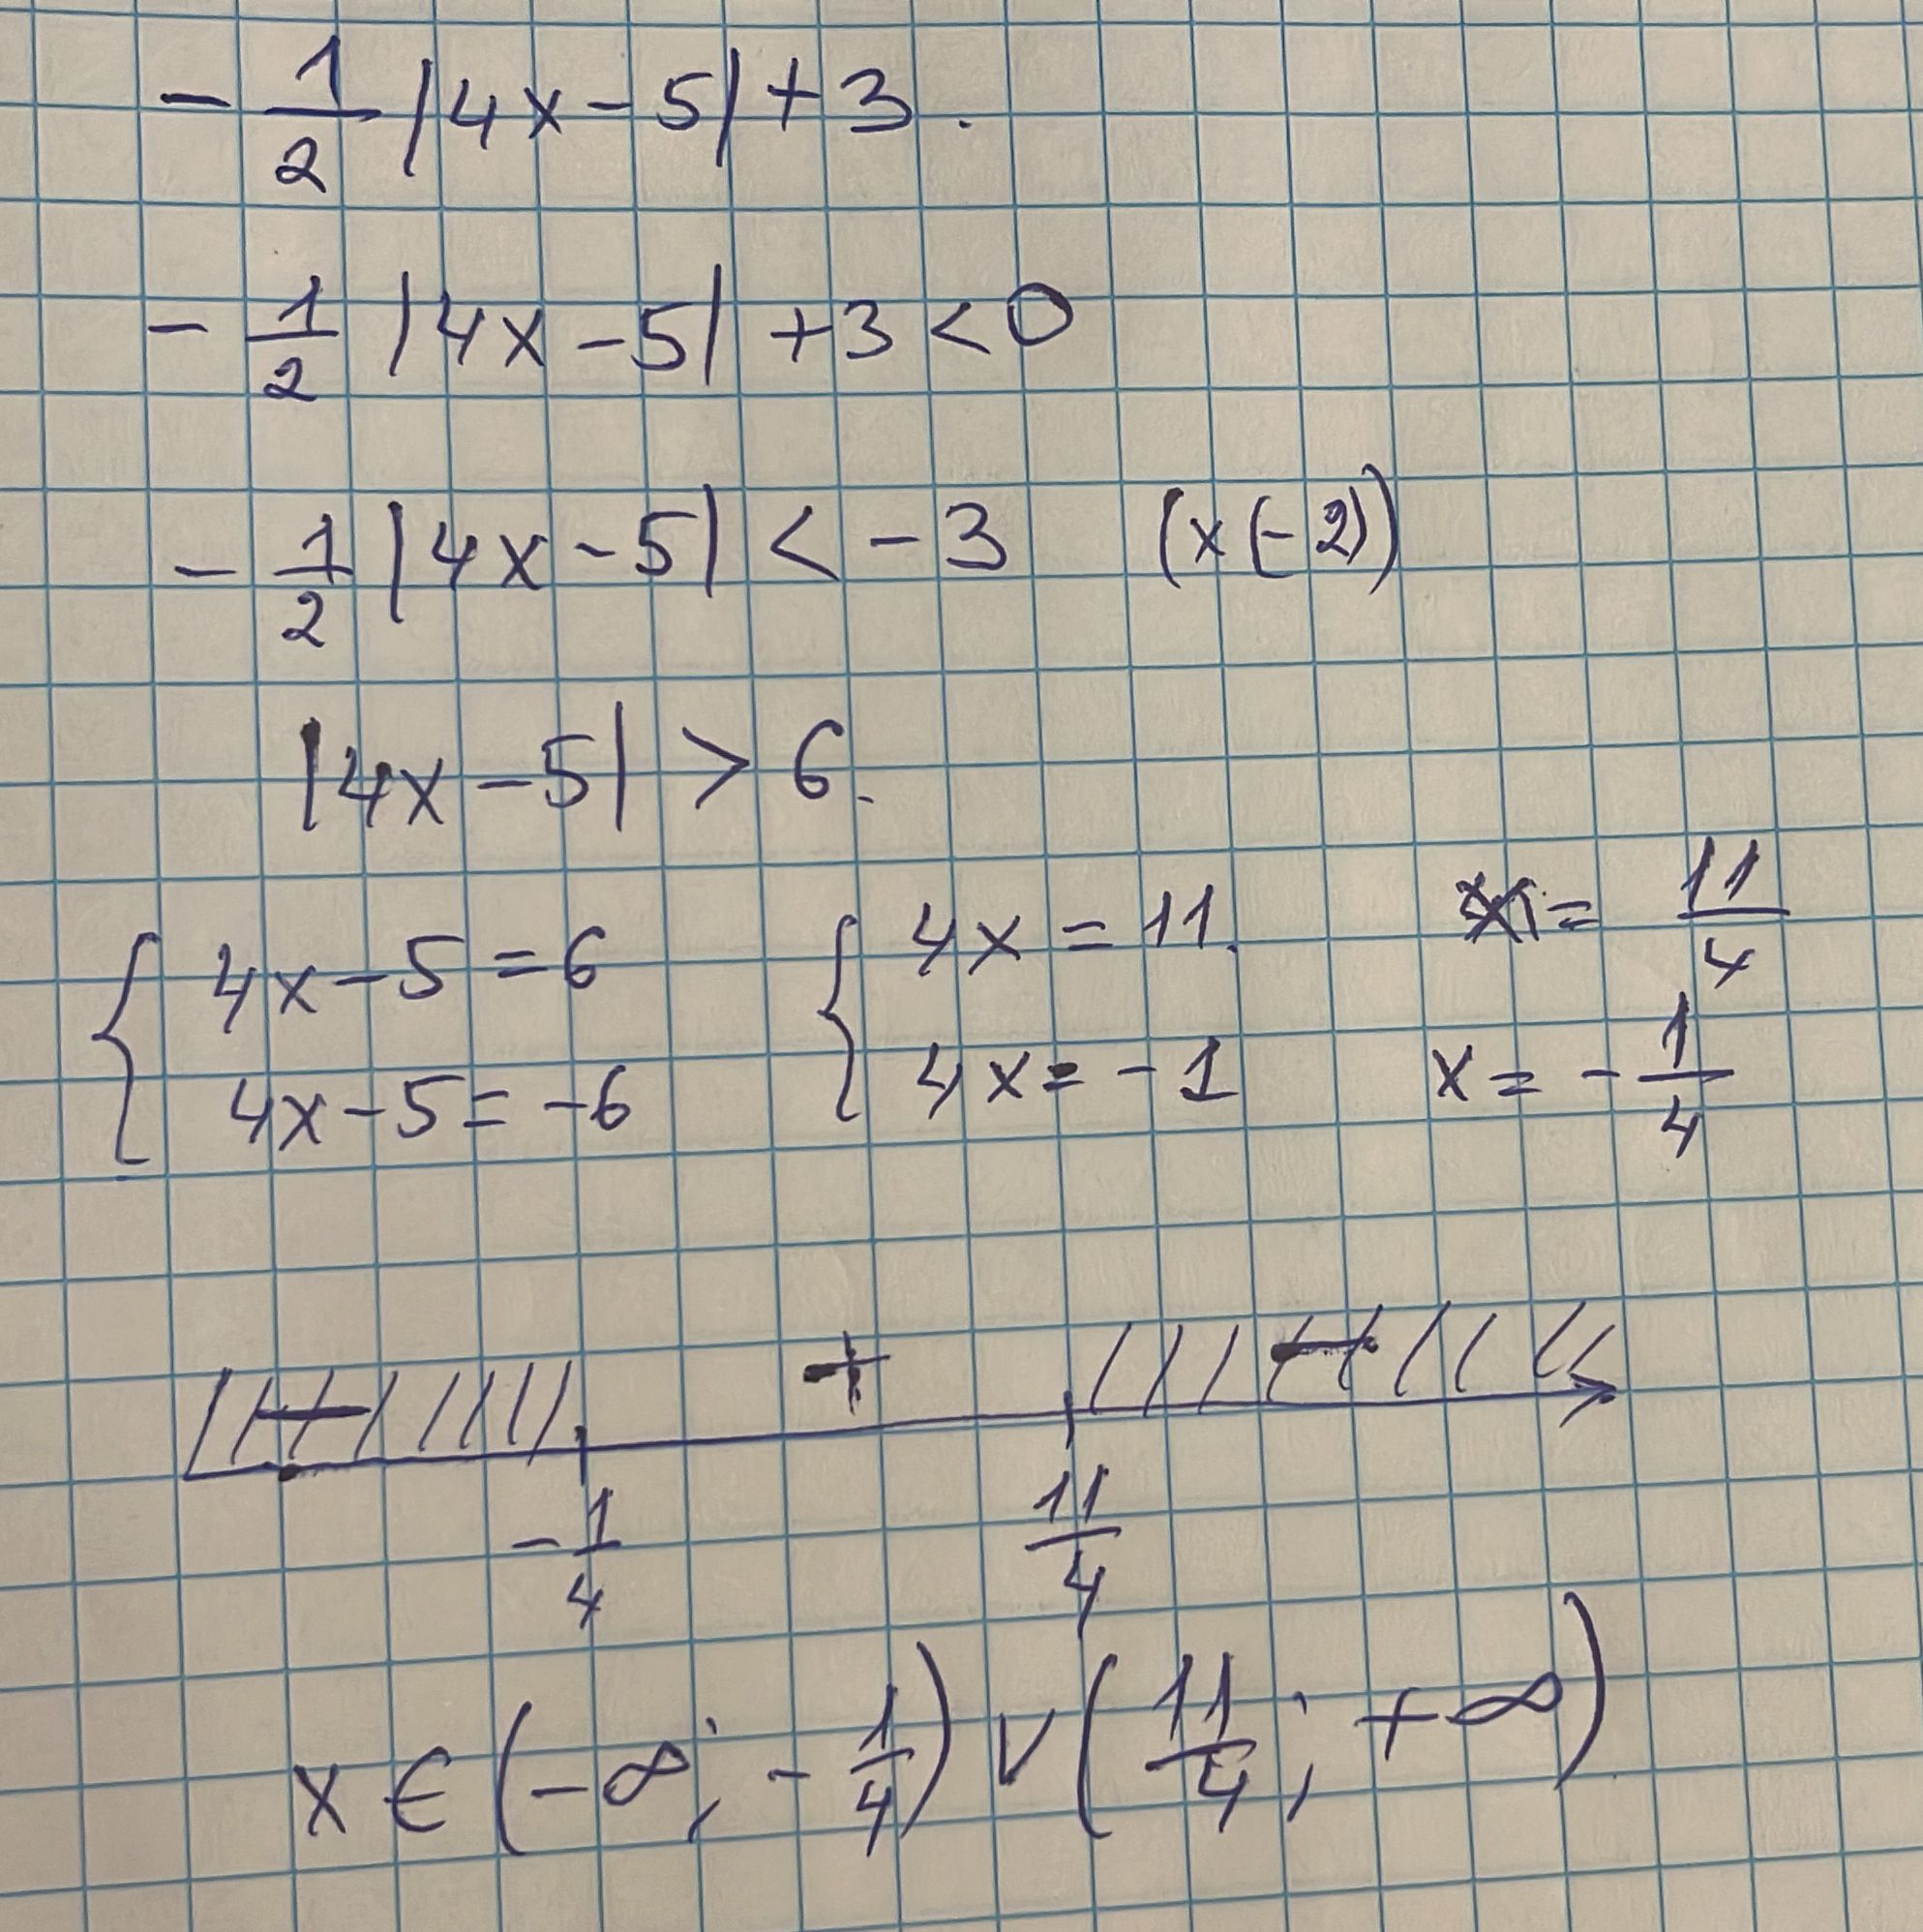 - 1/2 |4x - 5| + 3.
- 1/2 |4x - 5| + 3 < 0
- 1/2 |4x - 5| < - 3 (x (-2))
|4x - 5| > 6.
{ 4x - 5 = 6 { 4x = 11. = 11/4
4x - 5 = -6 4x = - 1 x = - 1/4
- + -
- 1/4 11/4
x ∈ (- ∞; - 1/4) ∨ (11/4; + ∞)